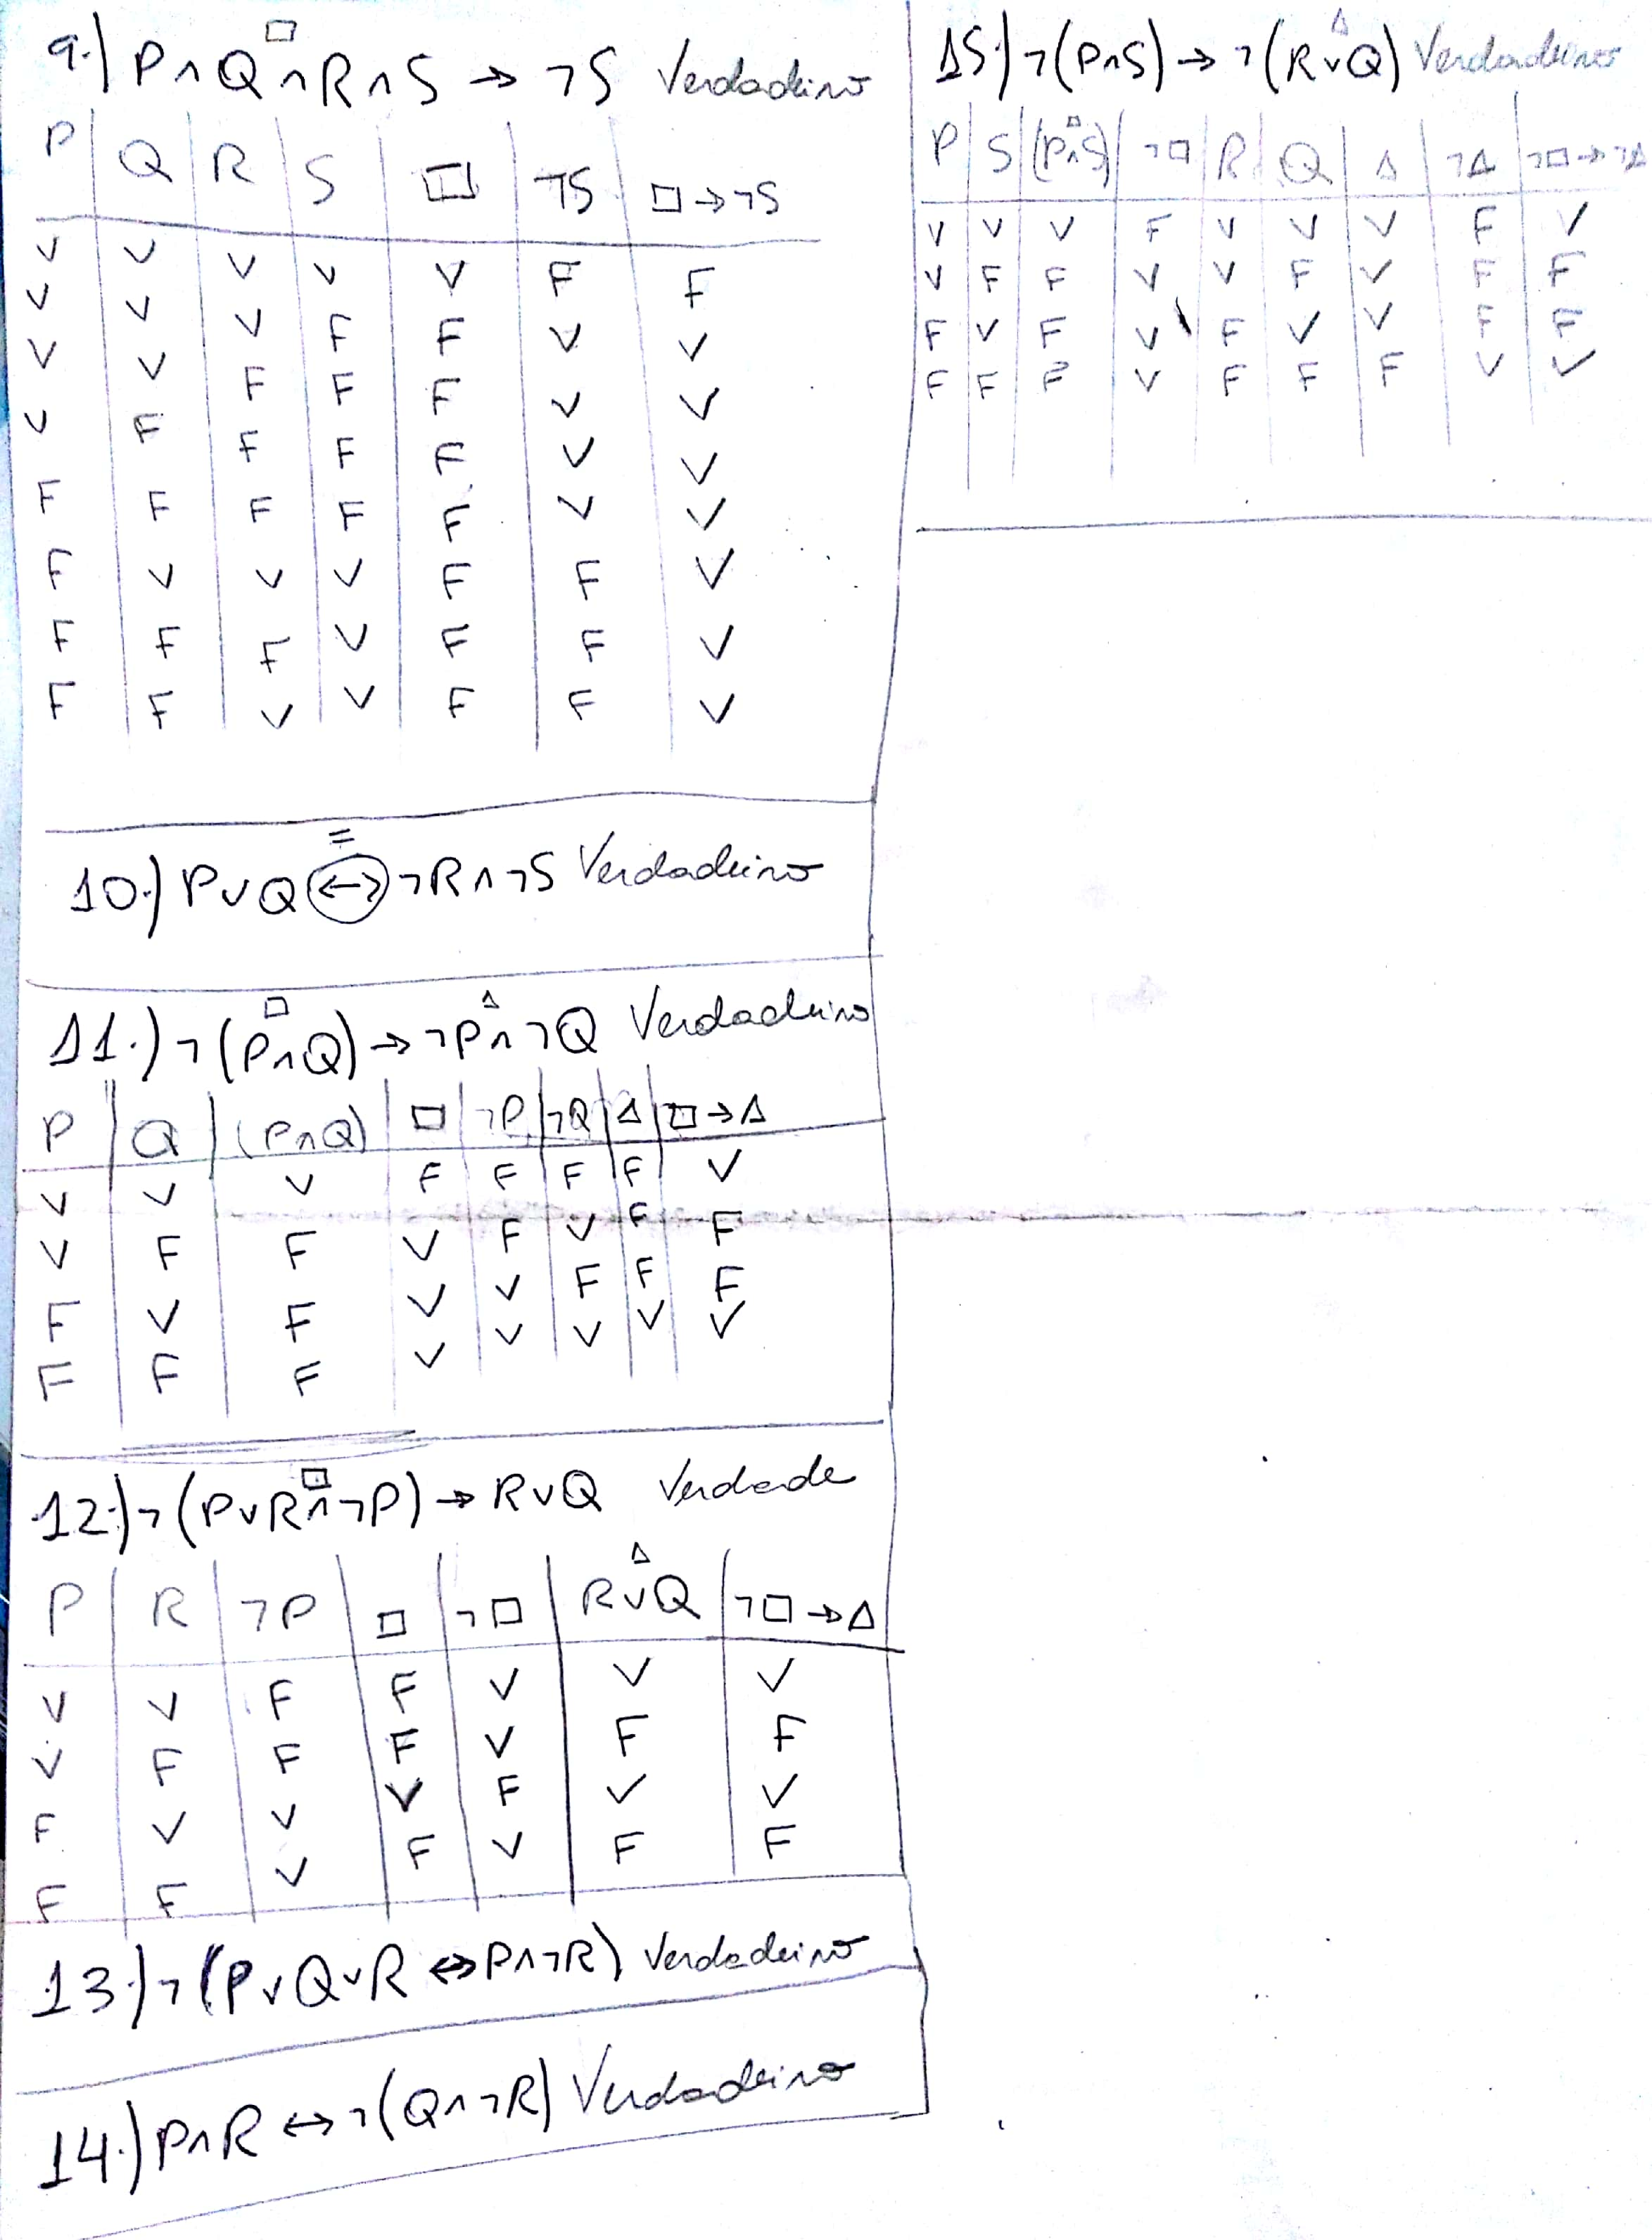 9.) P∧Q∧R∧S → ¬S Verdadeiro
□
P Q R S □ ¬S □→¬S
V V V V V F F
V V V F F V V
V V F F F V V
V F F F F V V
F F F F F V V
F V V V F F V
F F F V F F V
F F V V F F V
=
10.) P∨Q ↔ ¬R∧¬S Verdadeiro
□ △
11.) ¬(P∧Q) → ¬P∧¬Q Verdadeiro
P Q (P∧Q) □ ¬P ¬Q △ □→△
V V V F F F F V
V F F V F V F F
F V F V V F F F
F F F V V V V V
□
12.) ¬(P∨R∧¬P) → R∨Q Verdade
△
P R ¬P □ ¬□ R∨Q ¬□→△
V V F F V V V
V F F F V F F
F V V V F V V
F F V F V F F
13.) ¬(P∨Q∨R ↔ P∧¬R) Verdadeiro
14.) P∧R ↔ ¬(Q∧¬R) Verdadeiro
△
15.) ¬(P∧S) → ¬(R∨Q) Verdadeiro
□
P S (P∧S) ¬□ R Q △ ¬△ ¬□→¬△
V V V F V V V F V
V F F V V F V F F
F V F V F V V F F
F F F V F F F V V